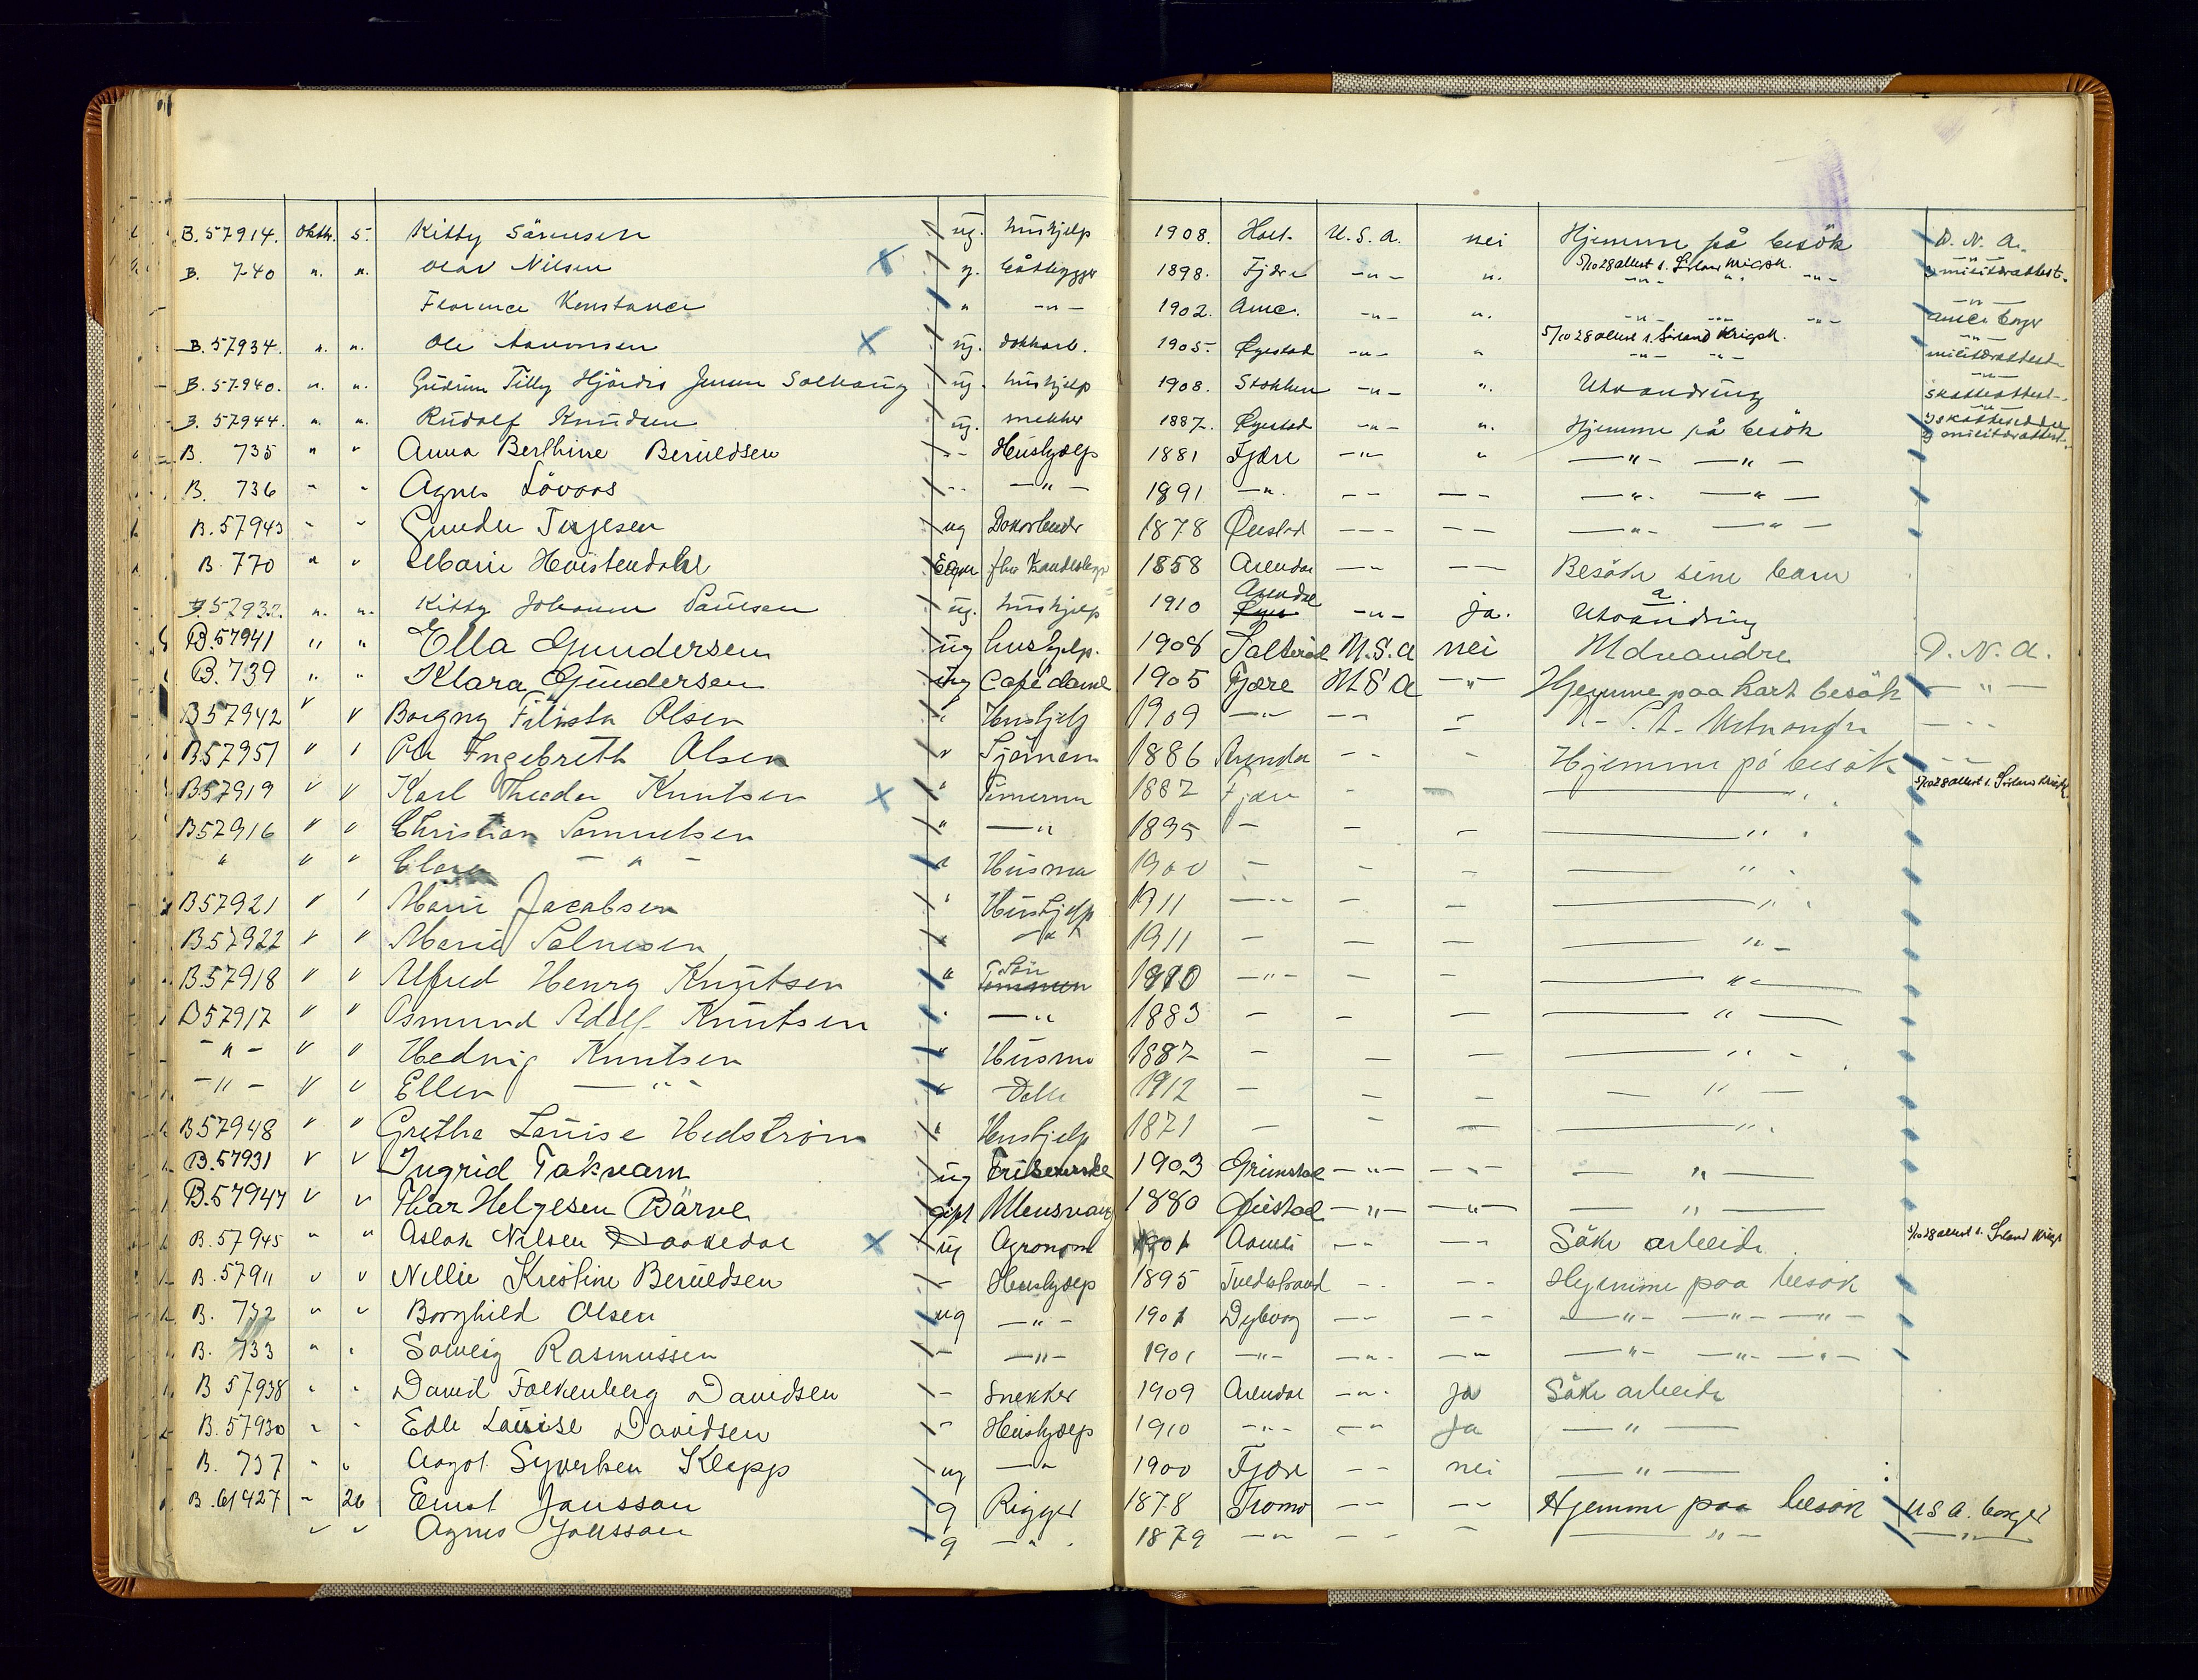 B.57914. Oktbr. 5. Kitty Sörensen ug. hushjelp 1908. Holt. U.S.A. nei Hjemme på besök D.N.A.
B. 740 " " Olav Nilsen g. båtbygger 1898. Fjære -"- " 5/10 28 attest f. Sörland Krigsk. -"- " -"- -"- militærattest.
Florence Konstance " -"- 1902. Amer. -"- " -"- -"- -"- -"- amer. borger
B.57934. " " Ole Aanonsen ug. dokkarb. 1905. Øyestad -"- " 5/10 28 attest f. Sörland Krigsk. -"- -"- -"- militærattest
B.57940. " " Gudrun Tilly Hjördis Solhaug ug. hushjelp 1908. Stokken -"- " Utvandring -"- skatteattest.
B.57944. " " Rudolf Knudsen ug. snekker 1887. Øyestad -"- " Hjemme på besök -"- militærattest.
B. 735 " " Anna Berthine Berueldsen -- Hushjælp 1881 Fjære -"- " -"- -"-
B. 736 " " Agnes Lövaas -- -"- 1891 -"- -- -- -"- -"-
B.57943 " " Gunder Terjesen ug Dokarbeider 1878 Øiestad --- -- -"- -"-
B. 770 " " Marie Hvistendahl 1858 Arendal -- -- Besöke sine barn
B.57932. " " Kitty Johanne ug. hushjelp 1910 Arendal -"- ja. Utvandring
B.57941 " " Ella Gundersen ug hushjelp. 1908 Salteröd U.S.A nei Udvandre D.N.A.
B.739 " " Klara Gundersen ug Cafedame 1905 Fjære U S A -"- Hjemme paa kort besök -"-
B57942 " " Borgny Olsen " Hushjelp 1909 -"- -- -
B57951 " " Per Ingebreth Olsen " Sjömann 1886 Arendal - - - Hjemme på besök - -
B57919 " " Karl Theodor Knutsen " Tömerm 1882 Fjære - - -"- 5/10 28 attest f. Sörland Krigsk.
B57916 " " Christian Samuelsen " -"- 1895 - - - -"-
" " " Clara -"- " Husmo 1900 - - - -"-
B57921 " " Marie Jacobsen " Hushjelp 1911 -"- - - -"-
B57922 " " Marie " -"- 1911 - - - -"-
B57918 " " Alfred Henry Knutsen " Sön 1910 -"- - - -"-
B57917 " " Osmund Adolf Knutsen " -"- 1883 - - - -"-
-"- " " Hedvig Knutsen " Husmo 1887 - - - -"-
-"- " " Ellen -"- " Datter 1912 - - - -"-
B57948 " " Grethe Louise Hedström " Hushjelp 1871 - - - -"-
B.57931 " " Ingrid Takvam ug Friserinske 1903 Grimstad -"- -"- -"-
B.57947 " " Thor Helgesen Bärve gift Ullensvang 1880 Øiestad -"- -"- -"-
B.57945 " " Aslak Nilsen ug Agronom 1901 Aamli -- -- Söke arbeide 5/10 28 attest f. Sörland Krigsk
B.57911 " " Nellie Kristine Berueldsen - Hushjælp 1895 Tvedestrand -- -- Hjemme paa besök
B. 732 " " Borghild Olsen ug -"- 1901 Dybvaag -- -- -"- -"- -"-
B. 733 " " Solveig Rasmussen - -"- 1901 -"- -"- -"- -"- -"- -"-
B 57938 " " David Falkenberg Davidsen - Snekker 1909 Arendal -"- Ja Söke arbeide
B.57930 " " Edle Louise Davidsen - Hushjælp 1910 -"- -"- Ja -"-
B. 737 " " Aagot Syvertsen Klepp ug -"- 1900 Fjære -- nei -"-
B.61427 " 26 Ernst Jansson g Rigger 1878 Tromø -- -- Hjemme paa besök U S A. borger
" " Agnes Jansson g -"- 1879 -"- -- - -"- -"-